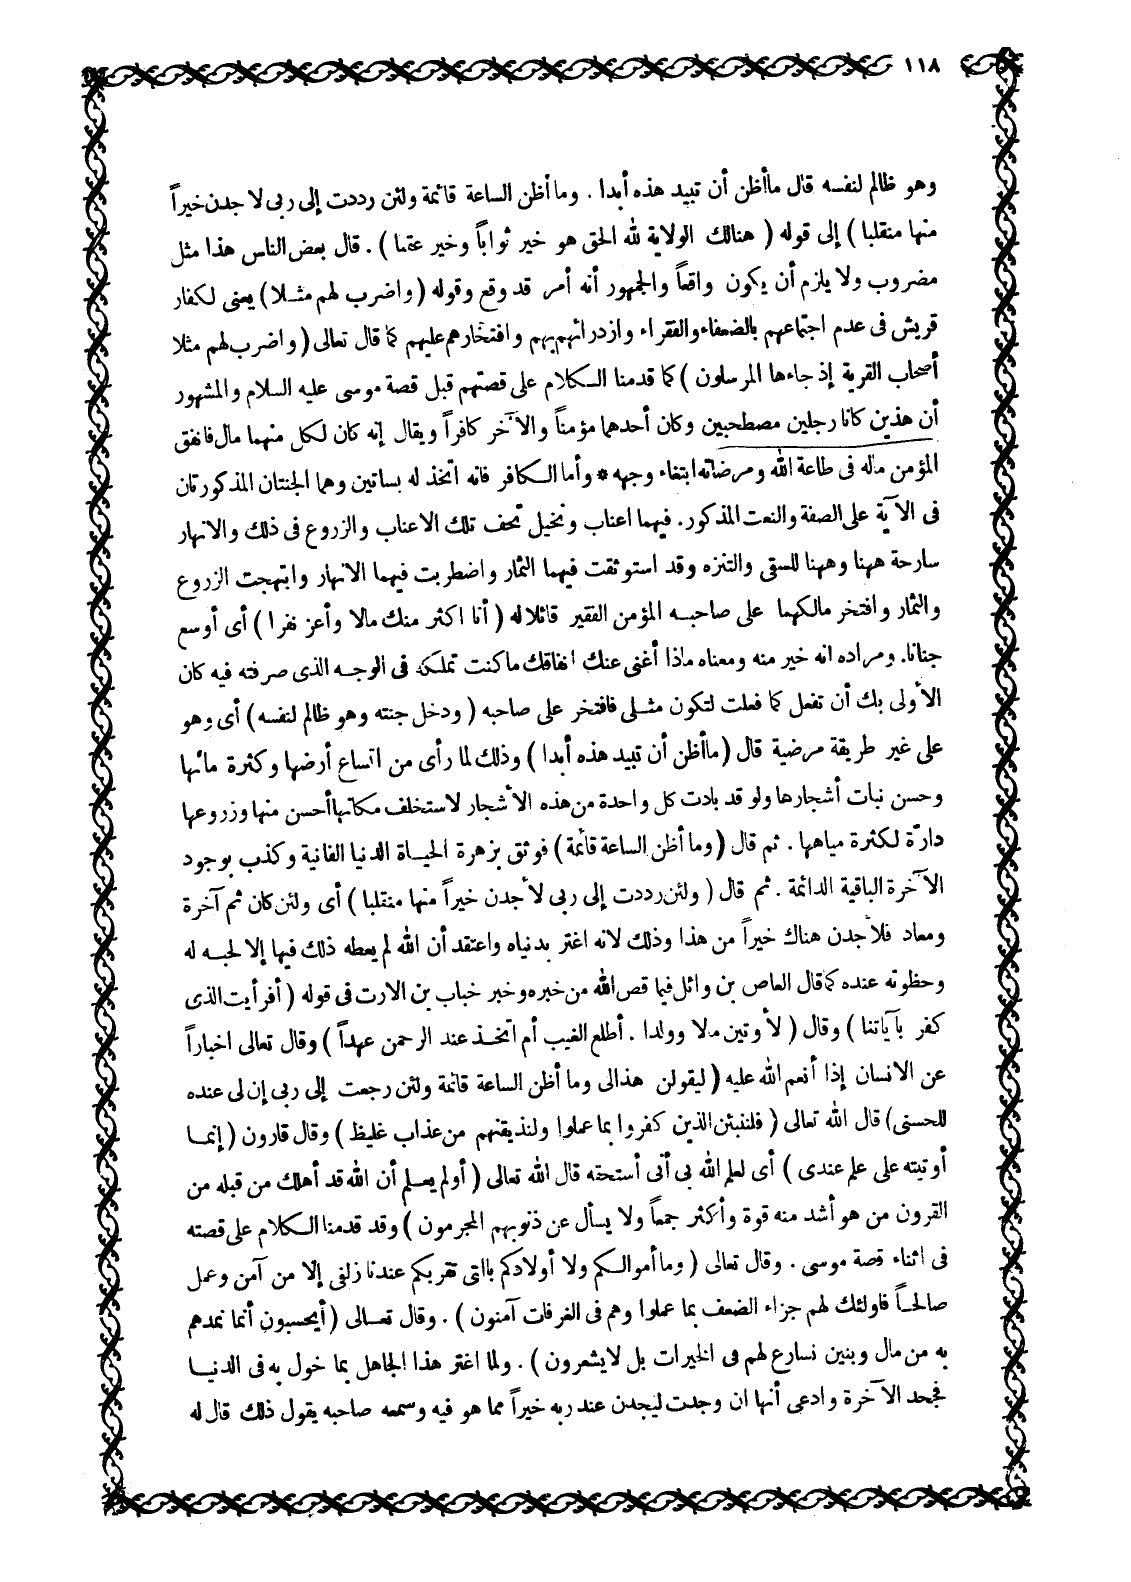 ١١٨
وهو ظالم لنفسه قال ماأظن أن تبيد هذه أبدا . وماأظن الساعة قائمة ولئن رددت إلى ربى لاجدن خيراً
منها منقلبا ) إلى قوله ( هنالك الولاية لله الحق هو خير ثواباً وخير عقبا ) . قال بعض الناس هذا مثل
مضروب ولا يلزم أن يكون واقعاً والجمهور أنه أمر قد وقع وقوله ( واضرب لهم مثلا ) يعنى لكفار
قريش فى عدم اجتماعهم بالضعفاء والفقراء وازدرائهم بهم وافتخارهم عليهم كما قال تعالى ( واضرب لهم مثلا
أصحاب القرية إذ جاءها المرسلون ) كما قدمنا الكلام على قصتهم قبل قصة موسى عليه السلام والمشهور
أن هذين كانا رجلين مصطحبين وكان أحدهما مؤمناً والآخر كافراً ويقال إنه كان لكل منهما مال فانفق
المؤمن ماله فى طاعة الله ومرضاته ابتغاء وجهه * وأما الكافر فانه اتخذ له بساتين وهما الجنتان المذكورتان
فى الآية على الصفة والنعت المذكور . فيهما اعناب ونخيل تحف تلك الاعناب والزروع فى ذلك والانهار
سارحة ههنا وههنا للسقى والتنزه وقد استوثقت فيهما الثمار واضطربت فيهما الانهار وابتهجت الزروع
والثمار وافتخر مالكهما على صاحبه المؤمن الفقير قائلا له ( أنا اكثر منك مالا وأعز نفرا ) أى أوسع
جنانا . ومراده انه خير منه ومعناه ماذا أغنى عنك انفاقك ماكنت تملكه فى الوجه الذى صرفته فيه كان
الأولى بك أن تفعل كما فعلت لتكون مثلى فافتخر على صاحبه ( ودخل جنته وهو ظالم لنفسه ) أى وهو
على غير طريقة مرضية قال ( ماأظن أن تبيد هذه أبدا ) وذلك لما رأى من اتساع أرضها وكثرة مائها
وحسن نبات أشجارها ولو قد بادت كل واحدة من هذه الأشجار لاستخلف مكانها أحسن منها وزروعها
دارّة لكثرة مياهها . ثم قال ( وما أظن الساعة قائمة ) فوثق بزهرة الحياة الدنيا الفانية وكذب بوجود
الآخرة الباقية الدائمة . ثم قال ( ولئن رددت إلى ربى لأجدن خيراً منها منقلبا ) أى ولئن كان ثم آخرة
ومعاد فلأجدن هناك خيراً من هذا وذلك لانه اغتر بدنياه واعتقد أن الله لم يعطه ذلك فيها إلا لحبه له
وحظوته عنده كما قال العاص بن وائل فيما قص الله من خبره وخبر خباب بن الارت فى قوله ( أفرأيت الذى
كفر بآياتنا ) وقال ( لأوتين مالا وولدا . أطلع الغيب أم اتخذ عند الرحمن عهداً ) وقال تعالى اخباراً
عن الانسان إذا أنعم الله عليه ( ليقولن هذالى وما أظن الساعة قائمة ولئن رجعت إلى ربى إن لى عنده
للحسنى ) قال الله تعالى ( فلننبئن الذين كفروا بما عملوا ولنذيقنهم من عذاب غليظ ) وقال قارون ( إنما
أوتيته على علم عندى ) أى لعلم الله بى أنى أستحقه قال الله تعالى ( أولم يعلم أن الله قد أهلك من قبله من
القرون من هو أشد منه قوة وأكثر جمعاً ولا يسأل عن ذنوبهم المجرمون ) وقد قدمنا الكلام على قصته
فى اثناء قصة موسى . وقال تعالى ( وما أموالكم ولا أولادكم بالتى تقربكم عندنا زلفى إلا من آمن وعمل
صالحاً فاولئك لهم جزاء الضعف بما عملوا وهم فى الغرفات آمنون ) . وقال تعالى ( أيحسبون أنما نمدهم
به من مال وبنين نسارع لهم فى الخيرات بل لايشعرون ) . ولما اغتر هذا الجاهل بما خول به فى الدنيا
فجحد الآخرة وادعى أنها ان وجدت ليجدن عند ربه خيراً مما هو فيه وسمعه صاحبه يقول ذلك قال له